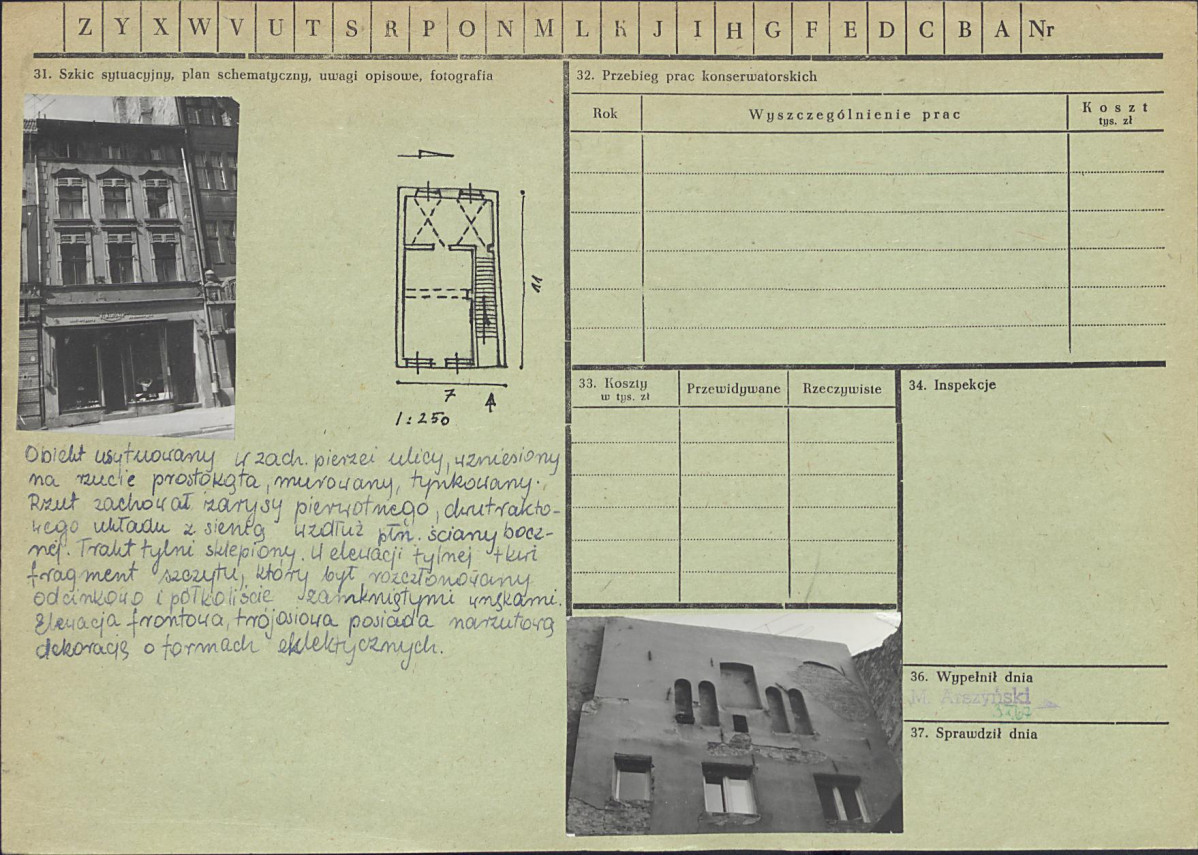 Z Y X W V U T S R P O N M L K J I H G F E D C B A Nr
31. Szkic sytuacyjny, plan schematyczny, uwagi opisowe, fotografia
11
7
1:250
Obiekt usytuowany w zach. pierzei ulicy, wzniesiony
na rzucie prostokąta, murowany, tynkowany.
Rzut zachował zarysy pierwotnego, dwutrakto-
wego układu z sienią wzdłuż płn. ściany bocz-
nej. Trakt tylni sklepiony. W elewacji tylnej tkwi
fragment szczytu, który był rozczłonowany
odcinkowo i półkoliście zamkniętymi wnękami.
Elewacja frontowa, trójosiowa posiada narzutową
dekorację o formach eklektycznych.
32. Przebieg prac konserwatorskich
Rok
Wyszczególnienie prac
Koszt
tys. zł
33. Koszty
w tys. zł
Przewidywane
Rzeczywiste
34. Inspekcje
36. Wypełnił dnia
M. Arszyński
37. Sprawdził dnia